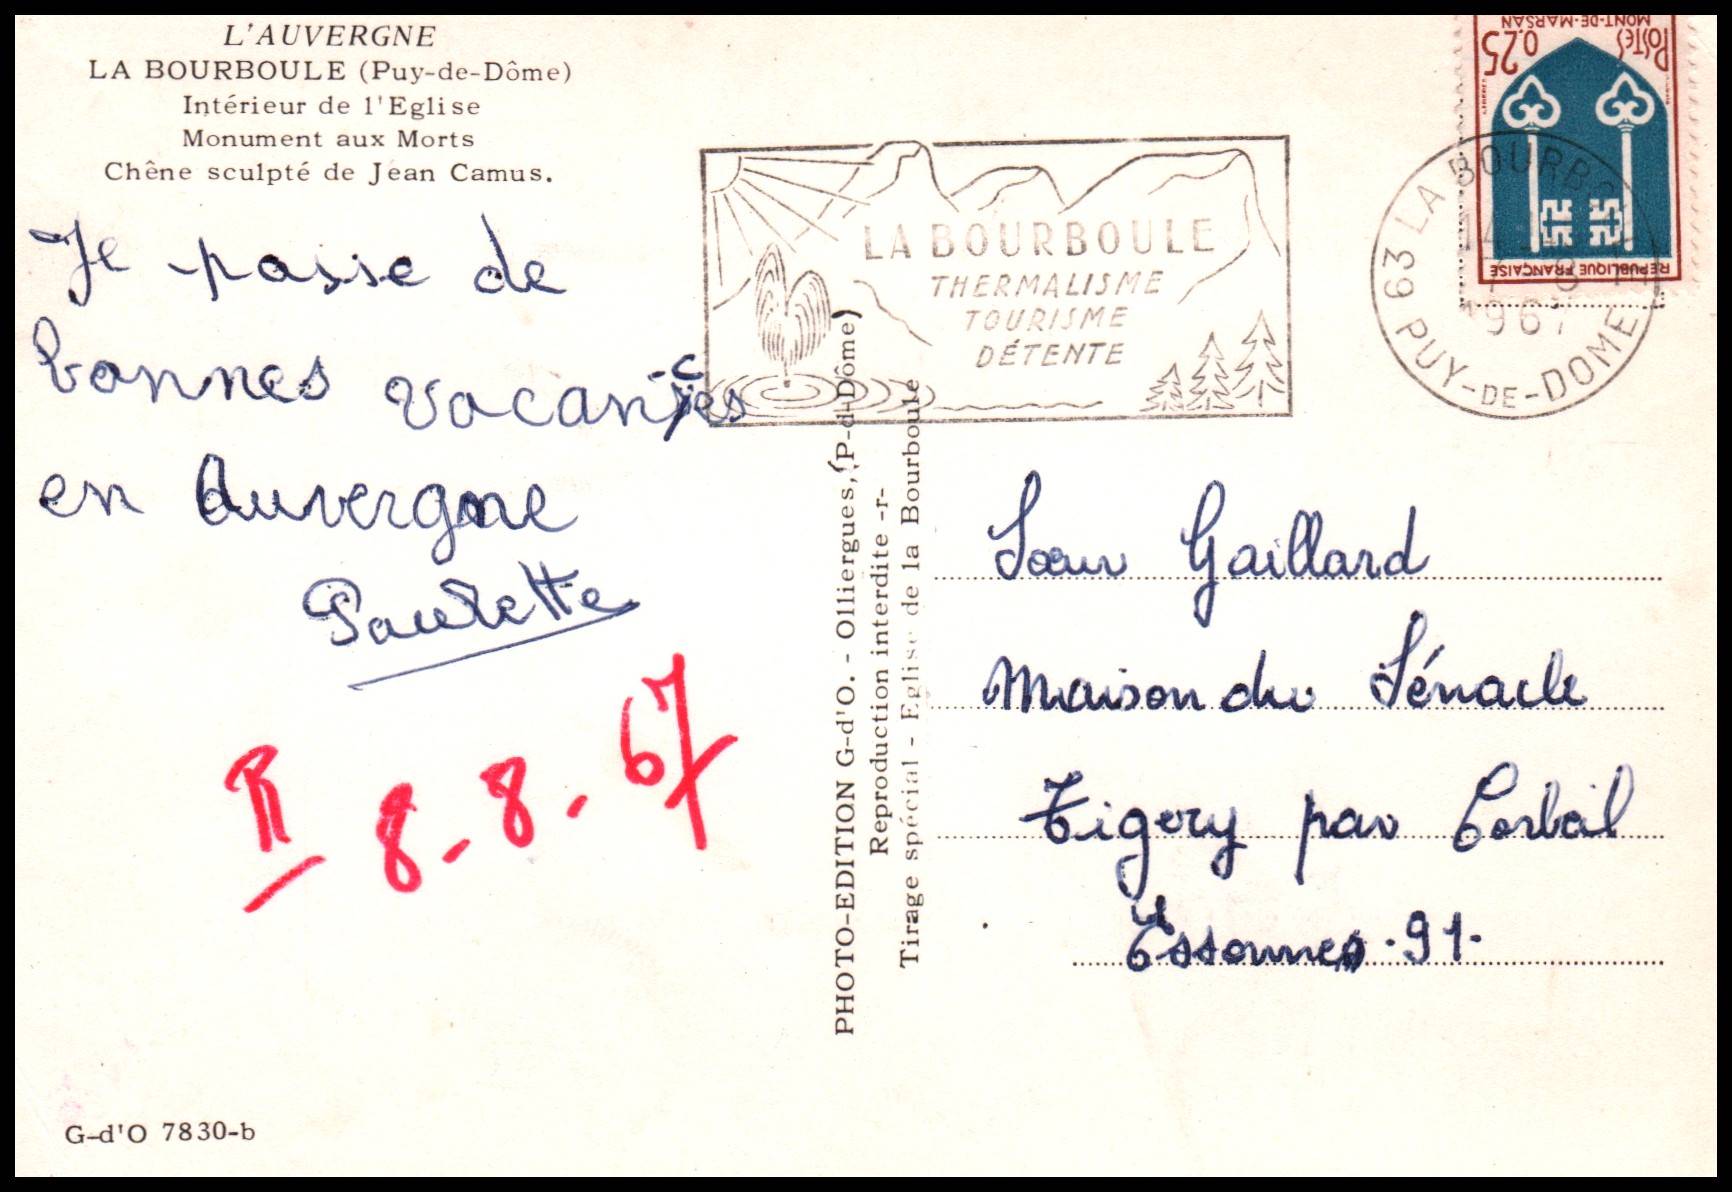 L'AUVERGNE
LA BOURBOULE (Puy-de-Dôme)
Intérieur de l'Eglise
Monument aux Morts
Chêne sculpté de Jean Camus.
Je passe de
bonnes vacances
en Auvergne
Paulette
R 8-8-67
G-d'O 7830-b
PHOTO-EDITION G-d'O. - Olliergues, (P-d-Dôme)
Reproduction interdite -r-
Tirage spécial - Eglise de la Bourboule
LA BOURBOULE
THERMALISME
TOURISME
DÉTENTE
MONT-DE-MARSAN
POSTES 0,25
REPUBLIQUE FRANÇAISE
63 LA BOURBO
1967
PUY-DE-DOME
Sœur Gaillard
Maison du Sénacle
Tigery par Corbeil
Essonnes. 91.